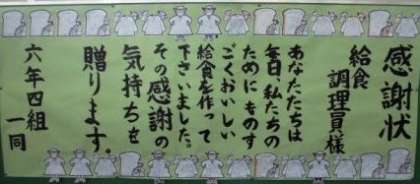 感謝状
給食
調理員様
あなたたちは
毎日、私たちの
ためにものす
ごくおいしい
給食を作って
下さいました。
その感謝の
気持ちを
贈ります。
六年四組
一同